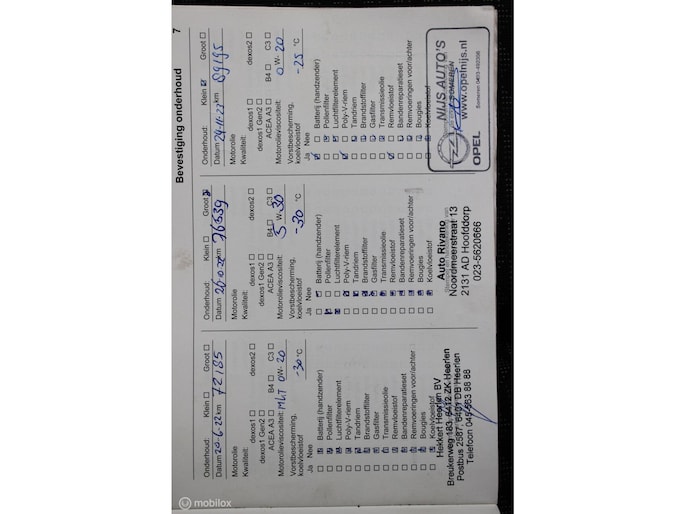 Bevestiging onderhoud
7
Onderhoud: Klein Groot
Datum 20-6-22 km 72185
Motorolie
Kwaliteit: dexos1 dexos2
dexos1 Gen2
ACEA A3 B4 C3
Motorolieviscositeit: 0W-20
Vorstbescherming,
koelvloeistof -30 °C
Ja Nee
Batterij (handzender)
Pollenfilter
Luchtfilterelement
Poly-V-riem
Tandriem
Brandstoffilter
Gasfilter
Transmissieolie
Remvloeistof
Bandenreparatieset
Remvoeringen voor/achter
Bougies
Koelvloeistof
Hekkert Heerlen BV
Breukerweg 183, 6412 ZK Heerlen
Postbus 2587, 6401 DB Heerlen
Telefoon 045-563 88 88
Onderhoud: Klein Groot
Datum km 76539
Motorolie
Kwaliteit: dexos1 dexos2
dexos1 Gen2
ACEA A3 B4 C3
Motorolieviscositeit: 5 W-30
Vorstbescherming,
koelvloeistof -30 °C
Ja Nee
Batterij (handzender)
Pollenfilter
Luchtfilterelement
Poly-V-riem
Tandriem
Brandstoffilter
Gasfilter
Transmissieolie
Remvloeistof
Bandenreparatieset
Remvoeringen voor/achter
Bougies
Koelvloeistof
Auto Rivano
Noordmeerstraat 13
2131 AD Hoofddorp
023-5620666
Onderhoud: Klein Groot
Datum 24-11-22 km 89195
Motorolie
Kwaliteit: dexos1 dexos2
dexos1 Gen2
ACEA A3 B4 C3
Motorolieviscositeit: 0 W-20
Vorstbescherming,
koelvloeistof -25 °C
Ja Nee
Batterij (handzender)
Pollenfilter
Luchtfilterelement
Poly-V-riem
Tandriem
Brandstoffilter
Gasfilter
Transmissieolie
Remvloeistof
Bandenreparatieset
Remvoeringen voor/achter
Bougies
Koelvloeistof
NIJS AUTO'S
SOMEREN
www.opelnijs.nl
OPEL
mobilox